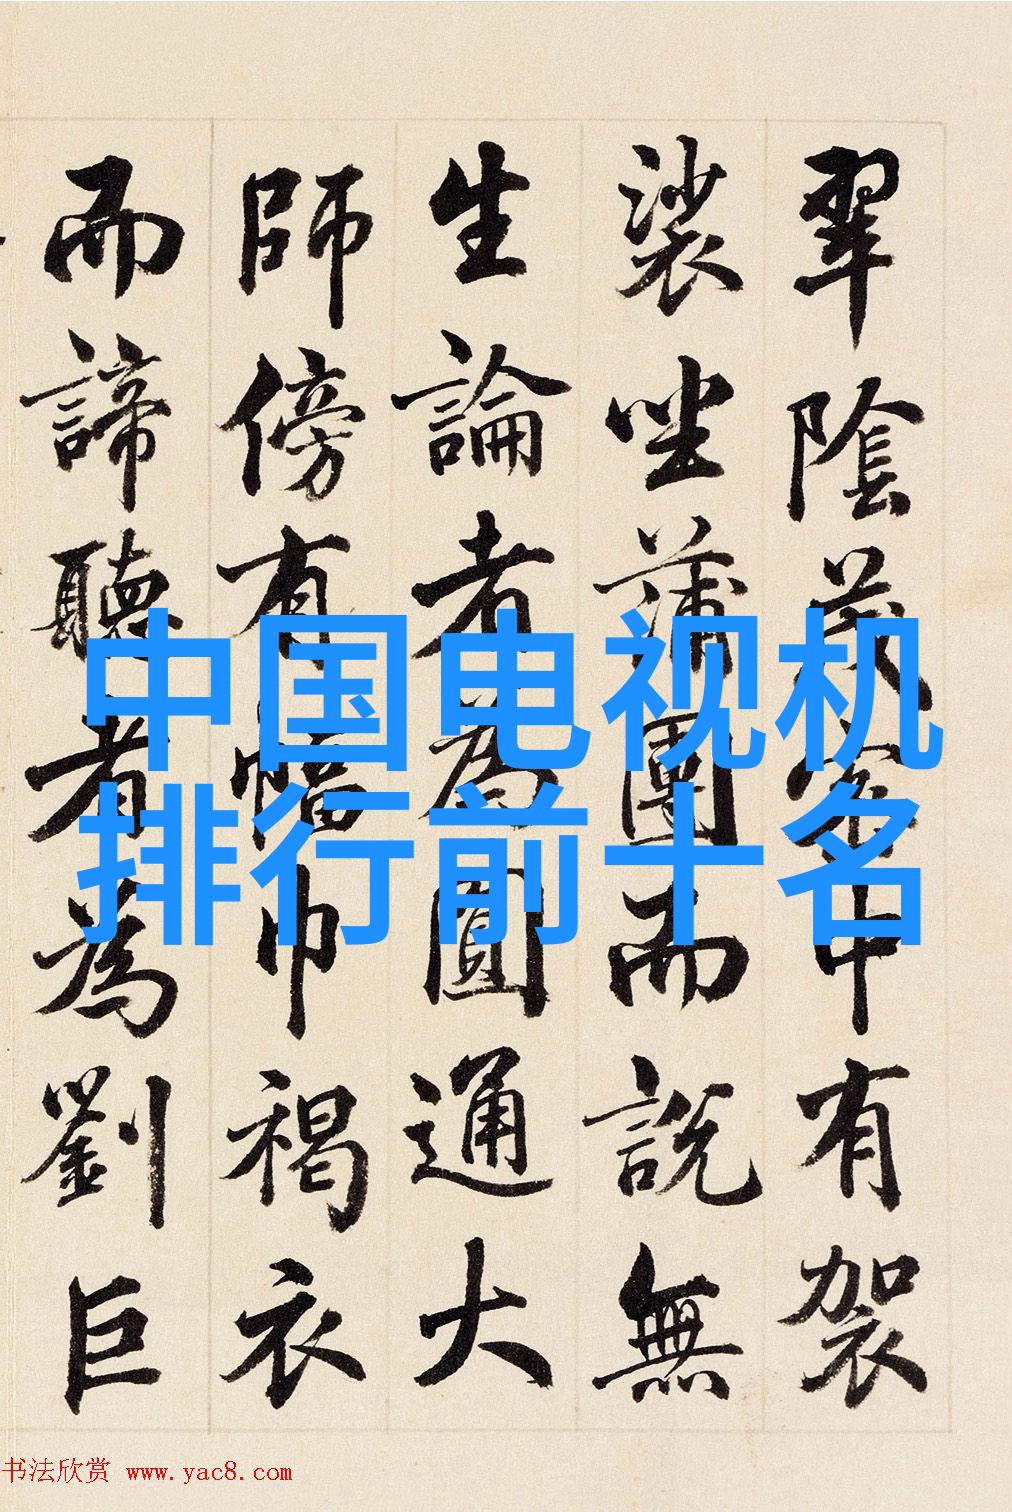 翠陰茂密中有袈
裟坐蒲團而說無
生論者為圓通大
師傍有幅巾褐衣
而諦聽者為劉巨
中国电视机
排行前十名
书法欣赏 www.yac8.com